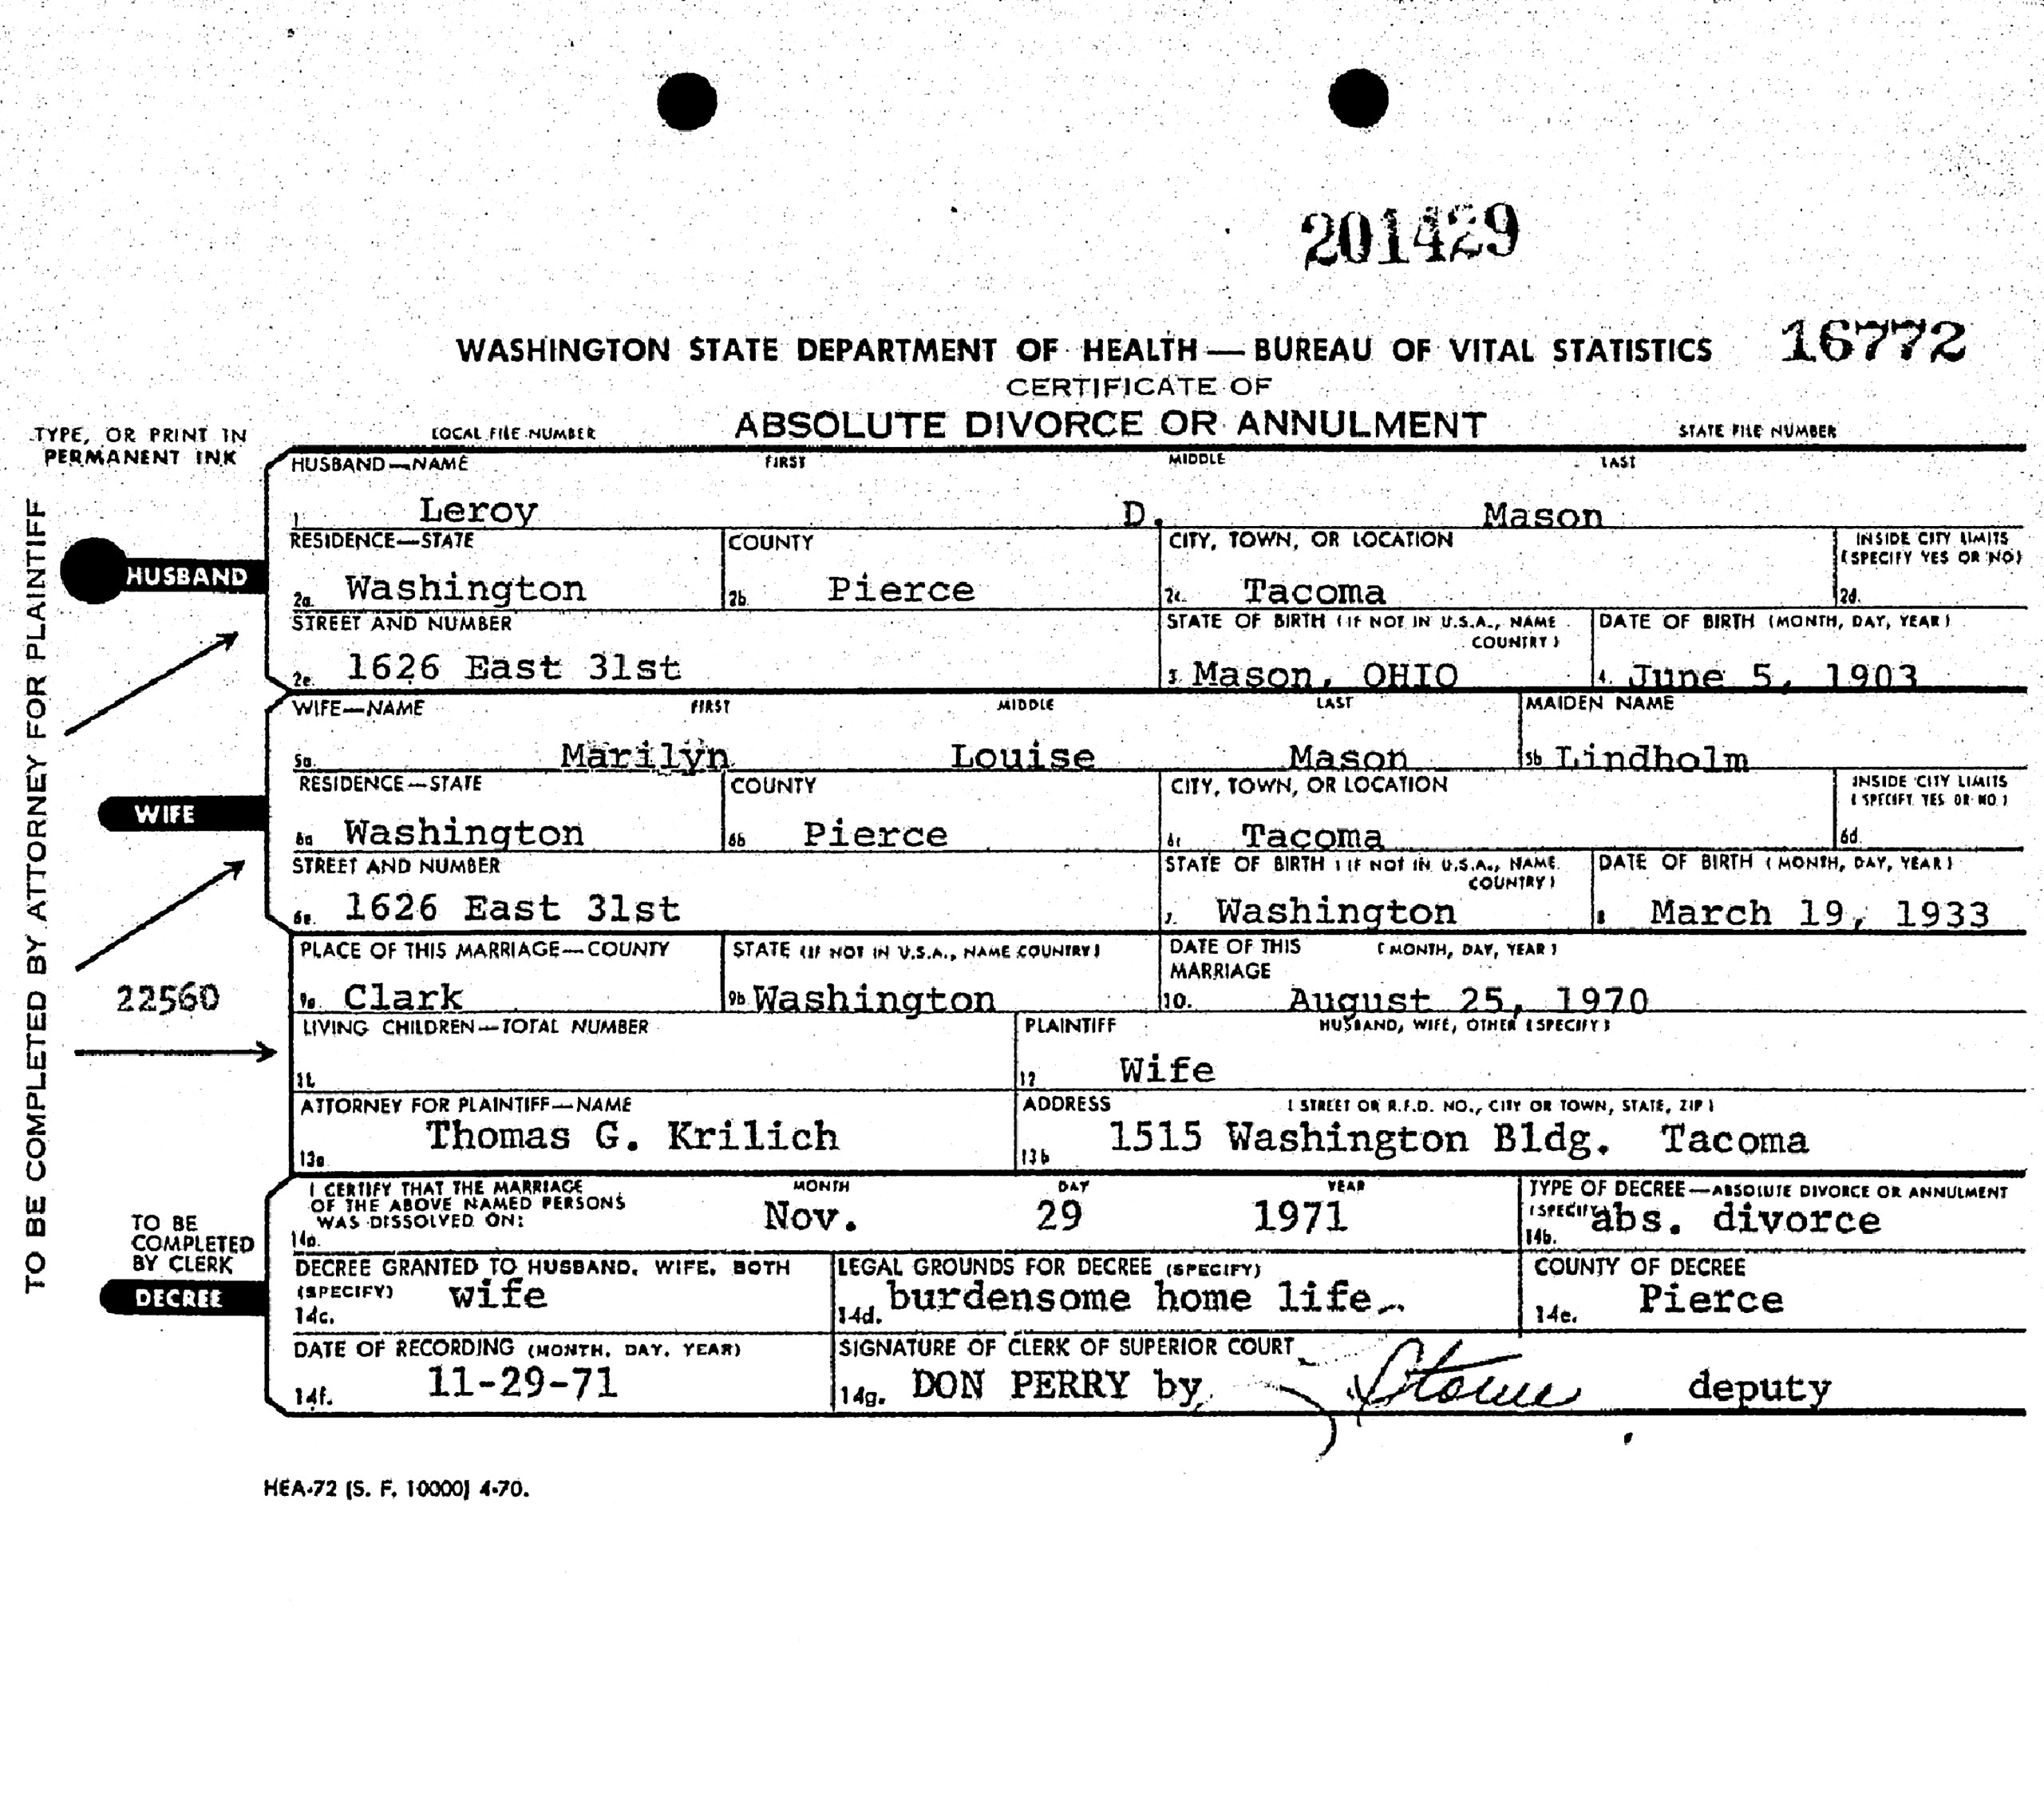 201429
WASHINGTON STATE DEPARTMENT OF HEALTH — BUREAU OF VITAL STATISTICS 16772
CERTIFICATE OF
ABSOLUTE DIVORCE OR ANNULMENT
TYPE, OR PRINT IN
PERMANENT INK
LOCAL FILE NUMBER STATE FILE NUMBER
TO BE COMPLETED BY ATTORNEY FOR PLAINTIFF
HUSBAND
HUSBAND—NAME FIRST MIDDLE LAST
1 Leroy D. Mason
RESIDENCE—STATE COUNTY CITY, TOWN, OR LOCATION INSIDE CITY LIMITS
(SPECIFY YES OR NO)
2a. Washington 2b. Pierce 2c. Tacoma 2d.
STREET AND NUMBER STATE OF BIRTH (IF NOT IN U.S.A., NAME COUNTRY) DATE OF BIRTH (MONTH, DAY, YEAR)
2e. 1626 East 31st 3. Mason, OHIO 4. June 5, 1903
WIFE
WIFE—NAME FIRST MIDDLE LAST MAIDEN NAME
5a. Marilyn Louise Mason 5b Lindholm
RESIDENCE—STATE COUNTY CITY, TOWN, OR LOCATION INSIDE CITY LIMITS
(SPECIFY YES OR NO)
6a Washington 6b Pierce 6c Tacoma 6d.
STREET AND NUMBER STATE OF BIRTH (IF NOT IN U.S.A., NAME COUNTRY) DATE OF BIRTH (MONTH, DAY, YEAR)
6e. 1626 East 31st 7. Washington 8 March 19, 1933
PLACE OF THIS MARRIAGE—COUNTY STATE (IF NOT IN U.S.A., NAME COUNTRY) DATE OF THIS MARRIAGE (MONTH, DAY, YEAR)
22560
9a. Clark 9b Washington 10. August 25, 1970
LIVING CHILDREN—TOTAL NUMBER PLAINTIFF HUSBAND, WIFE, OTHER (SPECIFY)
11. 12 Wife
ATTORNEY FOR PLAINTIFF—NAME ADDRESS (STREET OR R.F.D. NO., CITY OR TOWN, STATE, ZIP)
13a Thomas G. Krilich 13b 1515 Washington Bldg. Tacoma
TO BE
COMPLETED
BY CLERK
DECREE
I CERTIFY THAT THE MARRIAGE
OF THE ABOVE NAMED PERSONS
WAS DISSOLVED ON:
MONTH DAY YEAR TYPE OF DECREE—ABSOLUTE DIVORCE OR ANNULMENT
(SPECIFY)
14a. Nov. 29 1971 14b. abs. divorce
DECREE GRANTED TO HUSBAND, WIFE, BOTH
(SPECIFY)
LEGAL GROUNDS FOR DECREE (SPECIFY) COUNTY OF DECREE
14c. wife 14d. burdensome home life 14e. Pierce
DATE OF RECORDING (MONTH, DAY, YEAR) SIGNATURE OF CLERK OF SUPERIOR COURT
14f. 11-29-71 14g. DON PERRY by deputy
HEA-72 (S. F. 10000) 4-70.